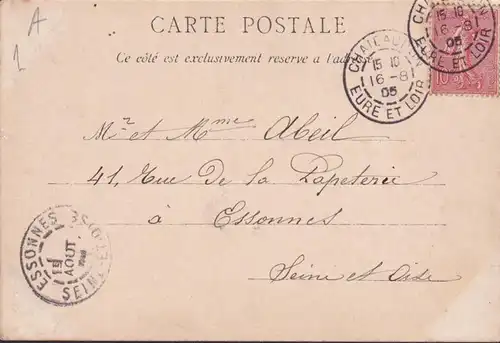 A
1
CARTE POSTALE
Ce côté est exclusivement reserve a l'adresse
CHATEAUDUN
15 10
16-8
05
EURE ET LOIR
CHATEAUDUN
15 10
16-8
05
EURE ET LOIR
10
Mr et Mme Abeil
41, Rue de la Papeterie
à Essonnes
Seine et Oise
ESSONNES
AOUT
SEINE-ET-OISE